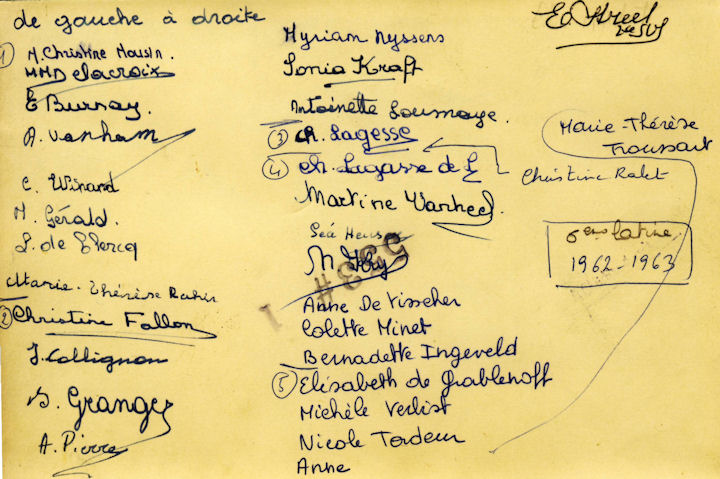 de gauche à droite
① M. Christine Housin.
MMDelacroix
E Burnay.
A. Vanham
C. Winand
M. Gérald.
S. de Clercq
Marie-Thérèse
② Christine Fallon
J. Collignon
S. Granger
A. Pierre
Myriam Nyssens
Sonia Kraft
Antoinette Loumaye.
③ Ch. Lagesse
④ Ch. Lagasse de L
Martine
M.
533# 1
Anne De Visscher
Colette Minet
Bernadette Ingeveld
⑤ Elisabeth de Grablenoff
Michèle Verlist
Nicole Tordeur
Anne
Marie-Thérèse
Troussart
Christine Ralet
6ème latine
1962-1963